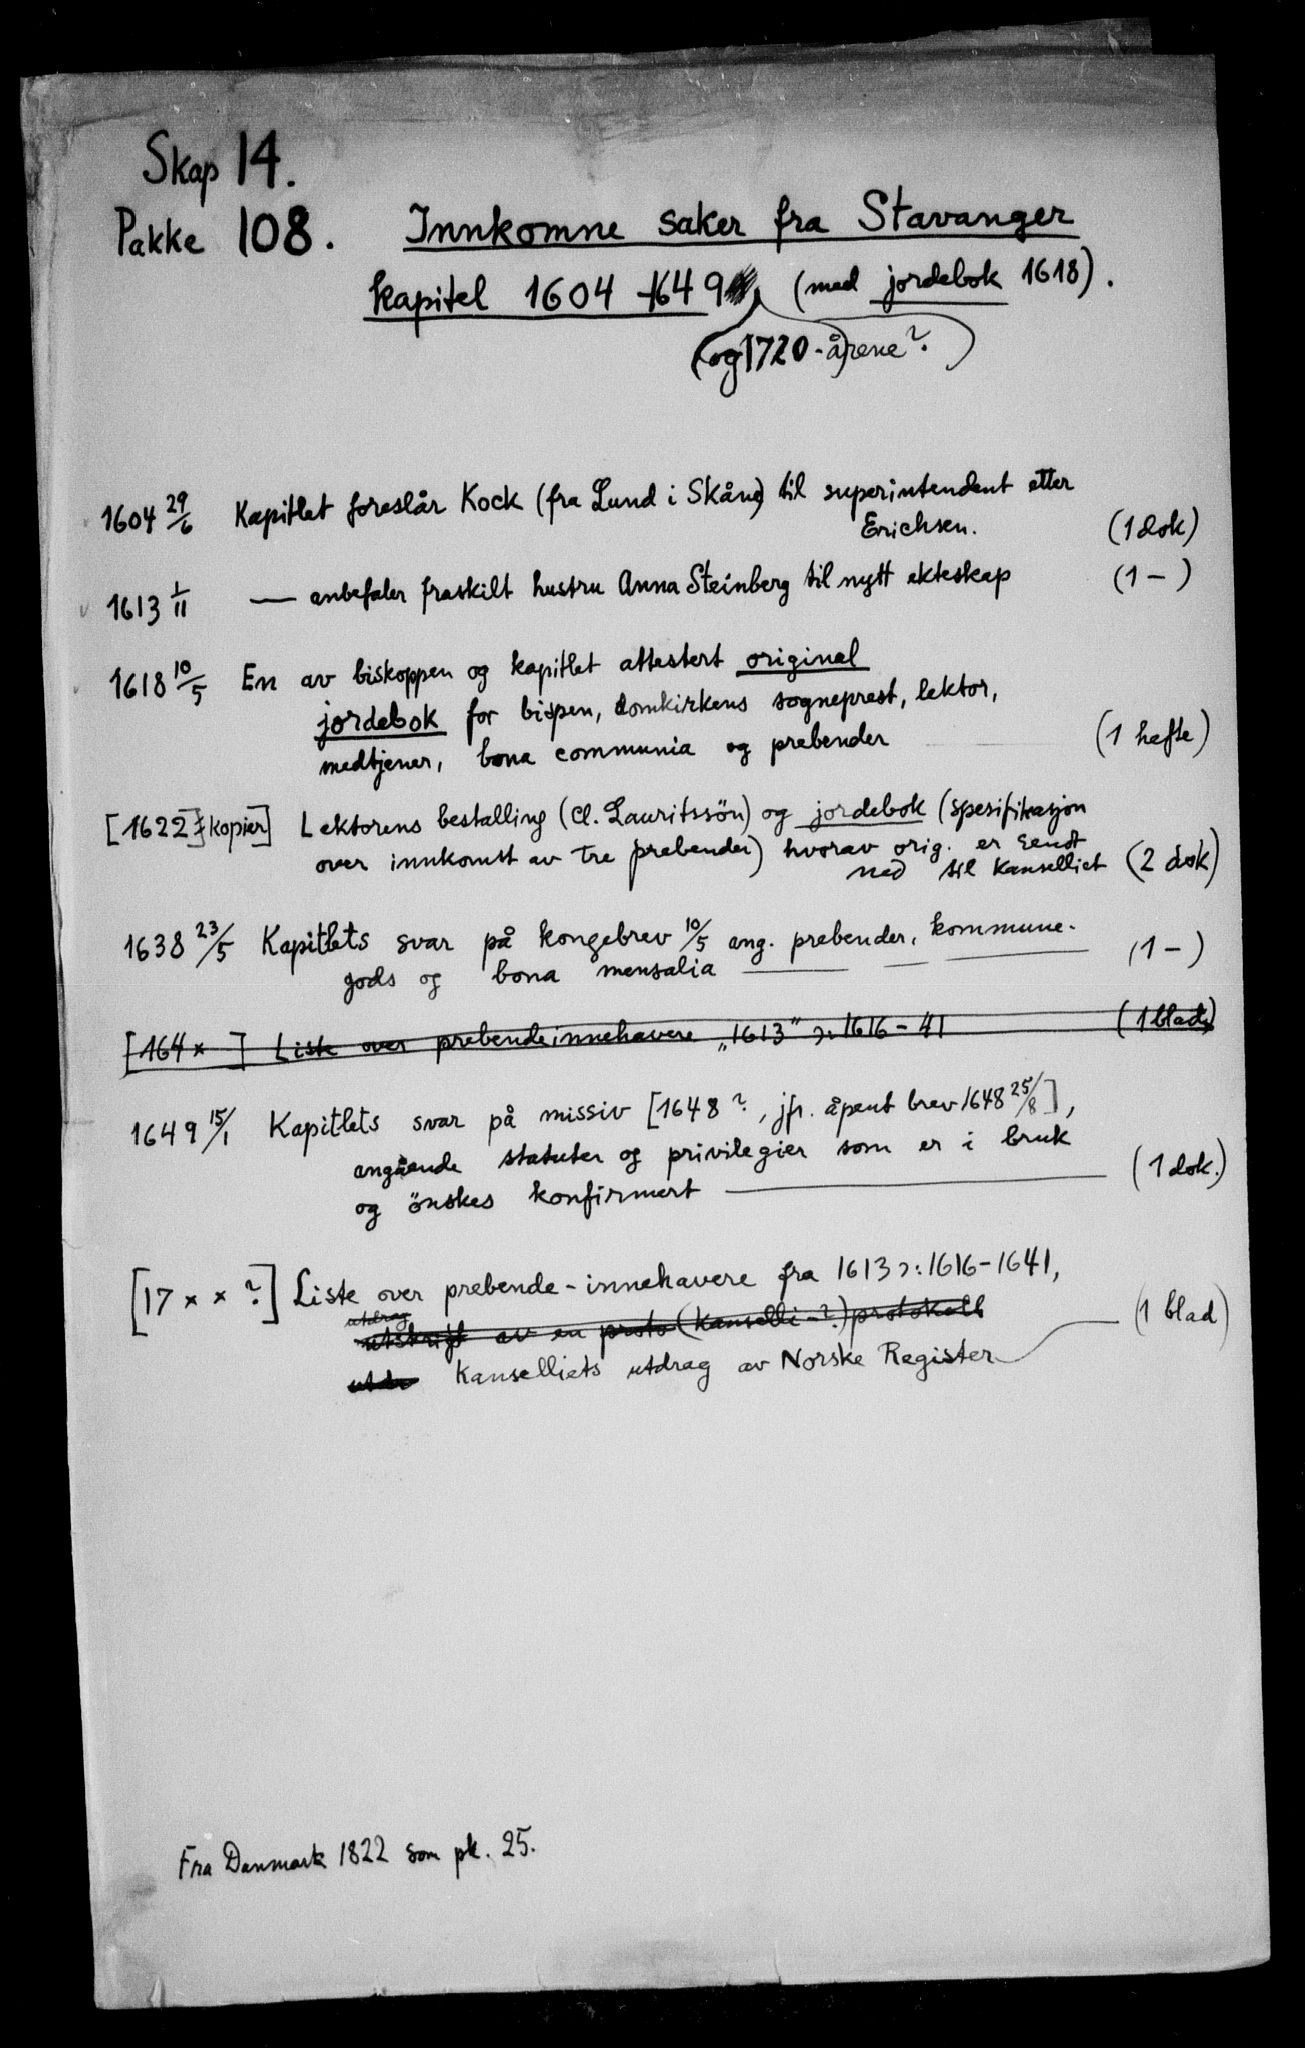 Skap 14.
Pakke 108. Innkomne saker fra Stavanger
kapitel 1604-1649 (med jordebok 1618).
(og 1720-årene?)
1604 29/6 Kapitlet foreslår Kock (fra Lund i Skåne) til superintendent etter
Erichsen. (1 dok)
1613 1/11 — anbefaler fraskilt hustru Anna Steinberg til nytt ekteskap (1 — )
1618 10/5 En av biskoppen og kapitlet attestert original
jordebok for bispen, domkirkens sogneprest, lektor,
medtjener, bona communia og prebender (1 hefte)
[1622] [kopier] Lektorens bestalling (Cl. Lauritssön) og jordebok (spesifikasjon
over innkomst av tre prebender) hvorav orig. er sendt
ned til Kanselliet (2 dok)
1638 23/5 Kapitlets svar på kongebrev 10/5 ang. prebender, kommune-
gods og bona mensalia (1 — )
[164x ] Liste over prebendeinnehavere „1613” ɔ: 1616-41 (1 blad)
1649 15/1 Kapitlets svar på missiv [1648?, jfr. åpent brev 1648 25/8],
angående statuter og privilegier som er i bruk
og önskes konfirmert (1 dok.)
[17 x x ?] Liste over prebende-innehavere fra 1613 ɔ: 1616-1641,
utdrag
utskrift av en proto (kanselli-?) protokoll (1 blad)
utdr Kanselliets utdrag av Norske Register
Fra Danmark 1822 som pk. 25.